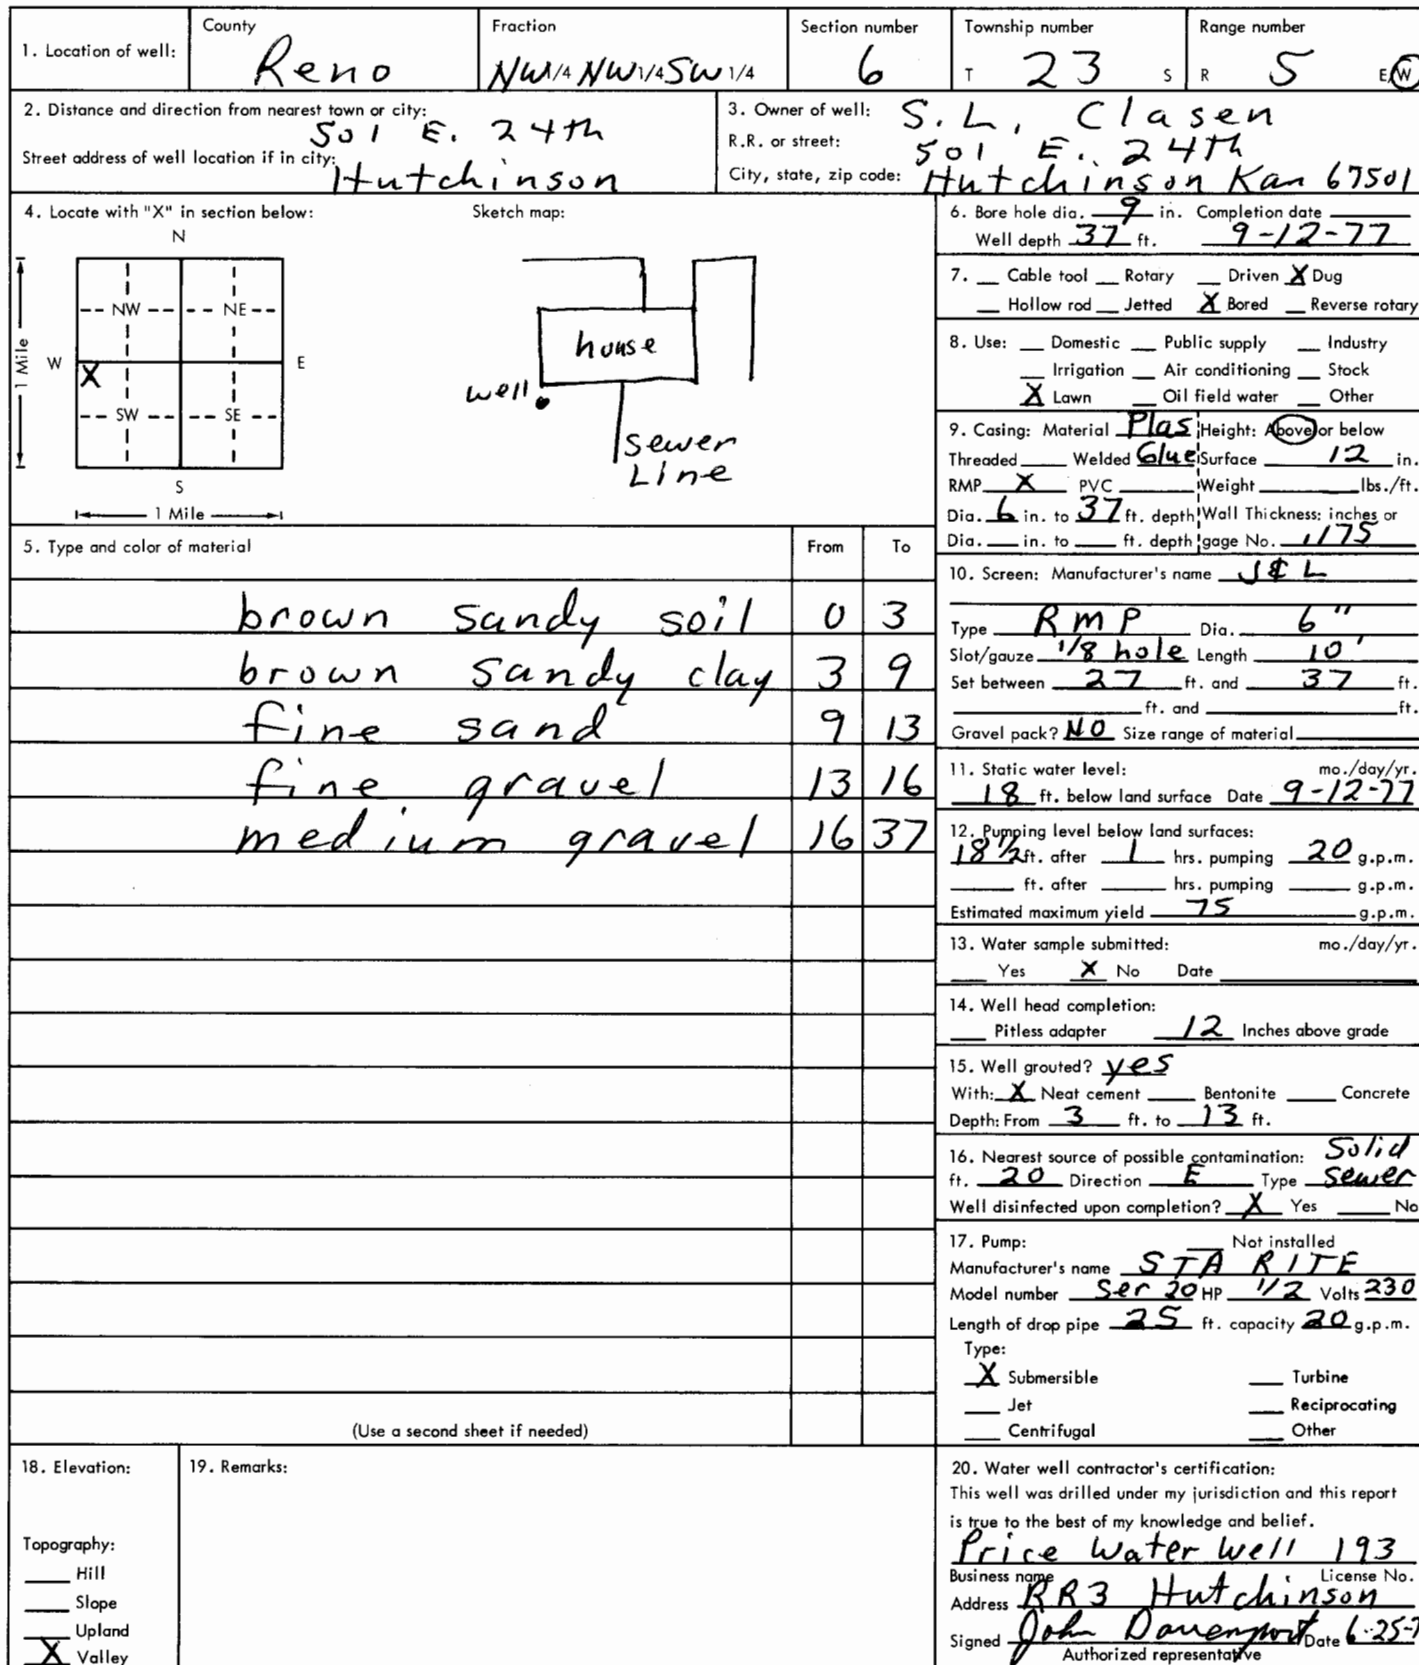 1. Location of well: County Reno Fraction NW 1/4 NW 1/4 SW 1/4 Section number 6 Township number T 23 S Range number R 5 E/W
2. Distance and direction from nearest town or city: 501 E. 24th
Street address of well location if in city: Hutchinson
3. Owner of well: S.L. Clasen
R.R. or street: 501 E. 24th
City, state, zip code: Hutchinson Kan 67501
4. Locate with "X" in section below:
N
NW NE
W E
X
SW SE
S
1 Mile
1 Mile
Sketch map:
house
well
sewer
Line
5. Type and color of material From To
brown sandy soil 0 3
brown sandy clay 3 9
fine sand 9 13
fine gravel 13 16
medium gravel 16 37
(Use a second sheet if needed)
6. Bore hole dia. 9 in. Completion date
Well depth 37 ft. 9-12-77
7. __ Cable tool __ Rotary __ Driven X Dug
__ Hollow rod __ Jetted X Bored __ Reverse rotary
8. Use: __ Domestic __ Public supply __ Industry
__ Irrigation __ Air conditioning __ Stock
X Lawn __ Oil field water __ Other
9. Casing: Material Plas Height: Above or below
Threaded ___ Welded Glue Surface 12 in.
RMP X PVC ___ Weight ___ lbs./ft.
Dia. 6 in. to 37 ft. depth Wall Thickness: inches or
Dia. __ in. to __ ft. depth gage No. .1175
10. Screen: Manufacturer's name J & L
Type RMP Dia. 6"
Slot/gauze 1/8 hole Length 10'
Set between 27 ft. and 37 ft.
___ ft. and ___ ft.
Gravel pack? NO Size range of material
11. Static water level: mo./day/yr.
18 ft. below land surface Date 9-12-77
12. Pumping level below land surfaces:
18 1/2 ft. after 1 hrs. pumping 20 g.p.m.
___ ft. after ___ hrs. pumping ___ g.p.m.
Estimated maximum yield 75 g.p.m.
13. Water sample submitted: mo./day/yr.
__ Yes X No Date
14. Well head completion:
__ Pitless adapter 12 Inches above grade
15. Well grouted? yes
With: X Neat cement ___ Bentonite ___ Concrete
Depth: From 3 ft. to 13 ft.
16. Nearest source of possible contamination: Solid
ft. 20 Direction E Type Sewer
Well disinfected upon completion? X Yes ___ No
17. Pump: __ Not installed
Manufacturer's name STA RITE
Model number Ser 20 HP 1/2 Volts 230
Length of drop pipe 25 ft. capacity 20 g.p.m.
Type:
X Submersible __ Turbine
__ Jet __ Reciprocating
__ Centrifugal __ Other
18. Elevation:
Topography:
__ Hill
__ Slope
__ Upland
X Valley
19. Remarks:
20. Water well contractor's certification:
This well was drilled under my jurisdiction and this report
is true to the best of my knowledge and belief.
Price Water Well 193
Business name License No.
Address RR3 Hutchinson
Signed John Davenport Date 6-25-7
Authorized representative